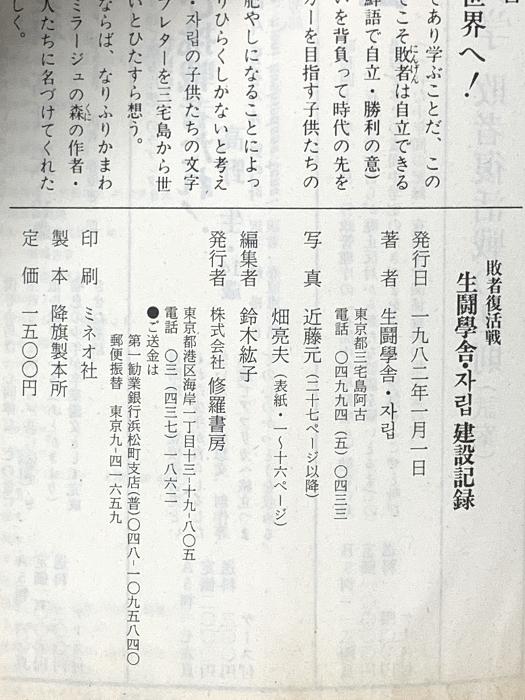 世界へ！
であり学ぶことだ、この
てこそ敗者は自立できる
にんげん
鮮語で自立・勝利の意）
いを背負って時代の先を
カーを目指す子供たちの
肥やしになることによっ
りひらくしかないと考え
・자립の子供たちの文字
ブレターを三宅島から世
いとひたすら想う。
ならば、なりふりかまわ
ミラージュの森の作者・
くに
人たちに名づけてくれた
しく。
敗者復活戦
生闘學舎・자립 建設記録
発行日 一九八二年一月一日
著者 生闘學舎・자립
東京都三宅島阿古
電話 〇四九九四（五）〇四三三
写真 近藤元（二十七ページ以降）
畑亮夫（表紙・一〜十六ページ）
編集者 鈴木紘子
発行者 株式会社 修羅書房
東京都港区海岸一丁目十三ー十九ー八〇五
電話 〇三（四三七）一八六二
●ご送金は
第一勧業銀行浜松町支店（普）〇四八ー一〇九五八四〇
郵便振替 東京九ー四一六五九
印刷 ミネオ社
製本 降旗製本所
定価 一五〇〇円